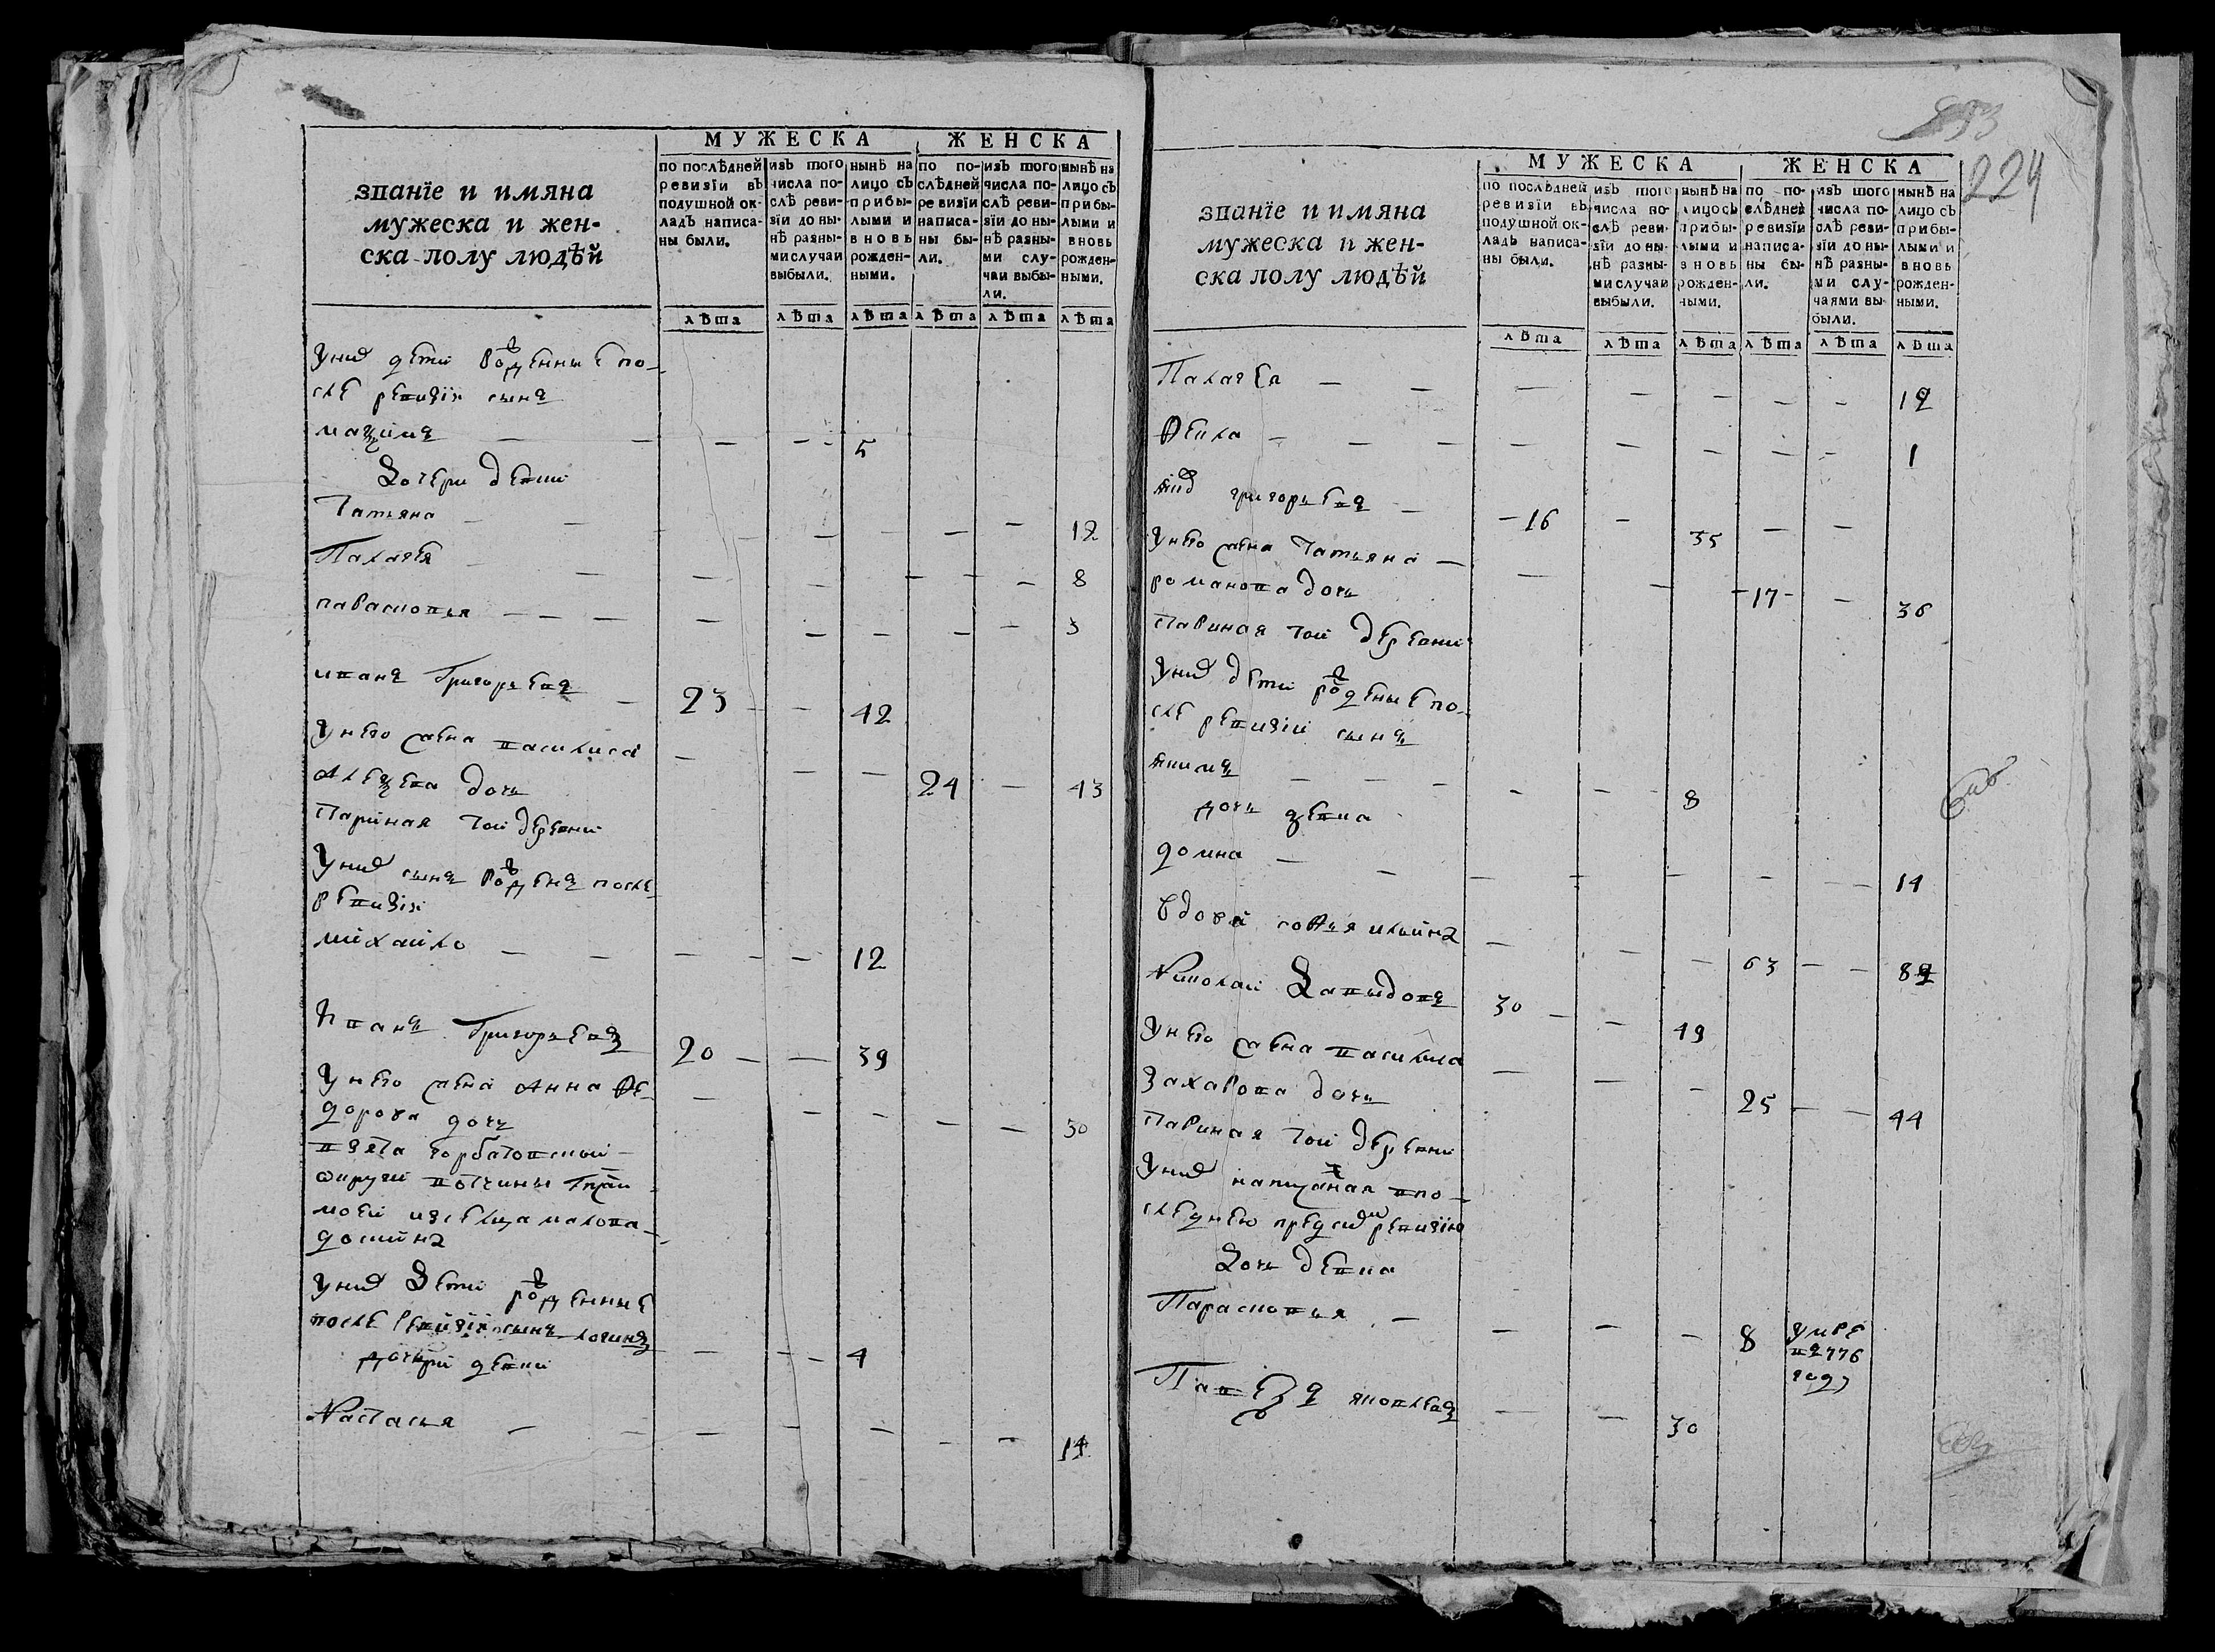 МУЖЕСКА ЖЕНСКА
званїе и имяна
мужеска и жен-
ска полу людѣй
по послѣдней ревизїи въ подушной ок- ладъ написа- ны были.
изъ того числа по- слѣ реви- зїи до ны- нѣ разны- ми случаи выбыли.
нынѣ на лицо съ прибы- лыми и вновь рожден- ными.
по по- слѣдней ревизїи написа- ны бы- ли.
изъ того числа по- слѣ реви- зїи до ны- нѣ разны- ми слу- чаи выбы- ли.
нынѣ на лицо съ прибы- лыми и вновь рожден- ными.
лѣта лѣта лѣта лѣта лѣта лѣта
У них дети рожденные по-
сле ревизїи сынъ
5
Дочери девки
Татьяна 12
Палагея 8
парасковья 3
иванъ Григорьевъ 23 42
У него жена василиса
24 43
Алексеева дочь
Взятая той деревни
У них сынъ рожденъ после
ревизїи
михайло 12
Иванъ Григорьевъ 20 39
У него жена Анна Фе-
дорова дочь 30
взята горбатовской
округи вотчины
У них дети рожденные
после ревизїи сынъ логинъ 4
дочери девки
Настасья 14
224
МУЖЕСКА ЖЕНСКА
званїе и имяна
мужеска и жен-
ска полу людѣй
по послѣдней ревизїи въ подушной ок- ладъ написа- ны были.
изъ того числа по- слѣ реви- зїи до ны- нѣ разны- ми случаи выбыли.
нынѣ на лицо съ прибы- лыми и вновь рожден- ными.
по по- слѣдней ревизїи написа- ны бы- ли.
изъ того числа по- слѣ реви- зїи до ны- нѣ разны- ми слу- чаями вы- были.
нынѣ на лицо съ прибы- лыми и вновь рожден- ными.
лѣта лѣта лѣта лѣта лѣта лѣта
Палагея 12
Фекла 1
григорьевъ 16 35
У него жена Татьяна
романова дочь 17 36
Взятая той деревни
У них дети рожденые по-
сле ревизїи сынъ
якимъ 8
дочь девка
домна 14
вдова софья ильина 63 82
Николай Давыдовъ 30 49
У него жена василиса
Захарова дочь 25 44
Взятая той деревни
У них написаная в по-
следнею пред сим ревизїю
Дочь девка
Парасковья 8 умре
в 1776
году
яковлевъ 30